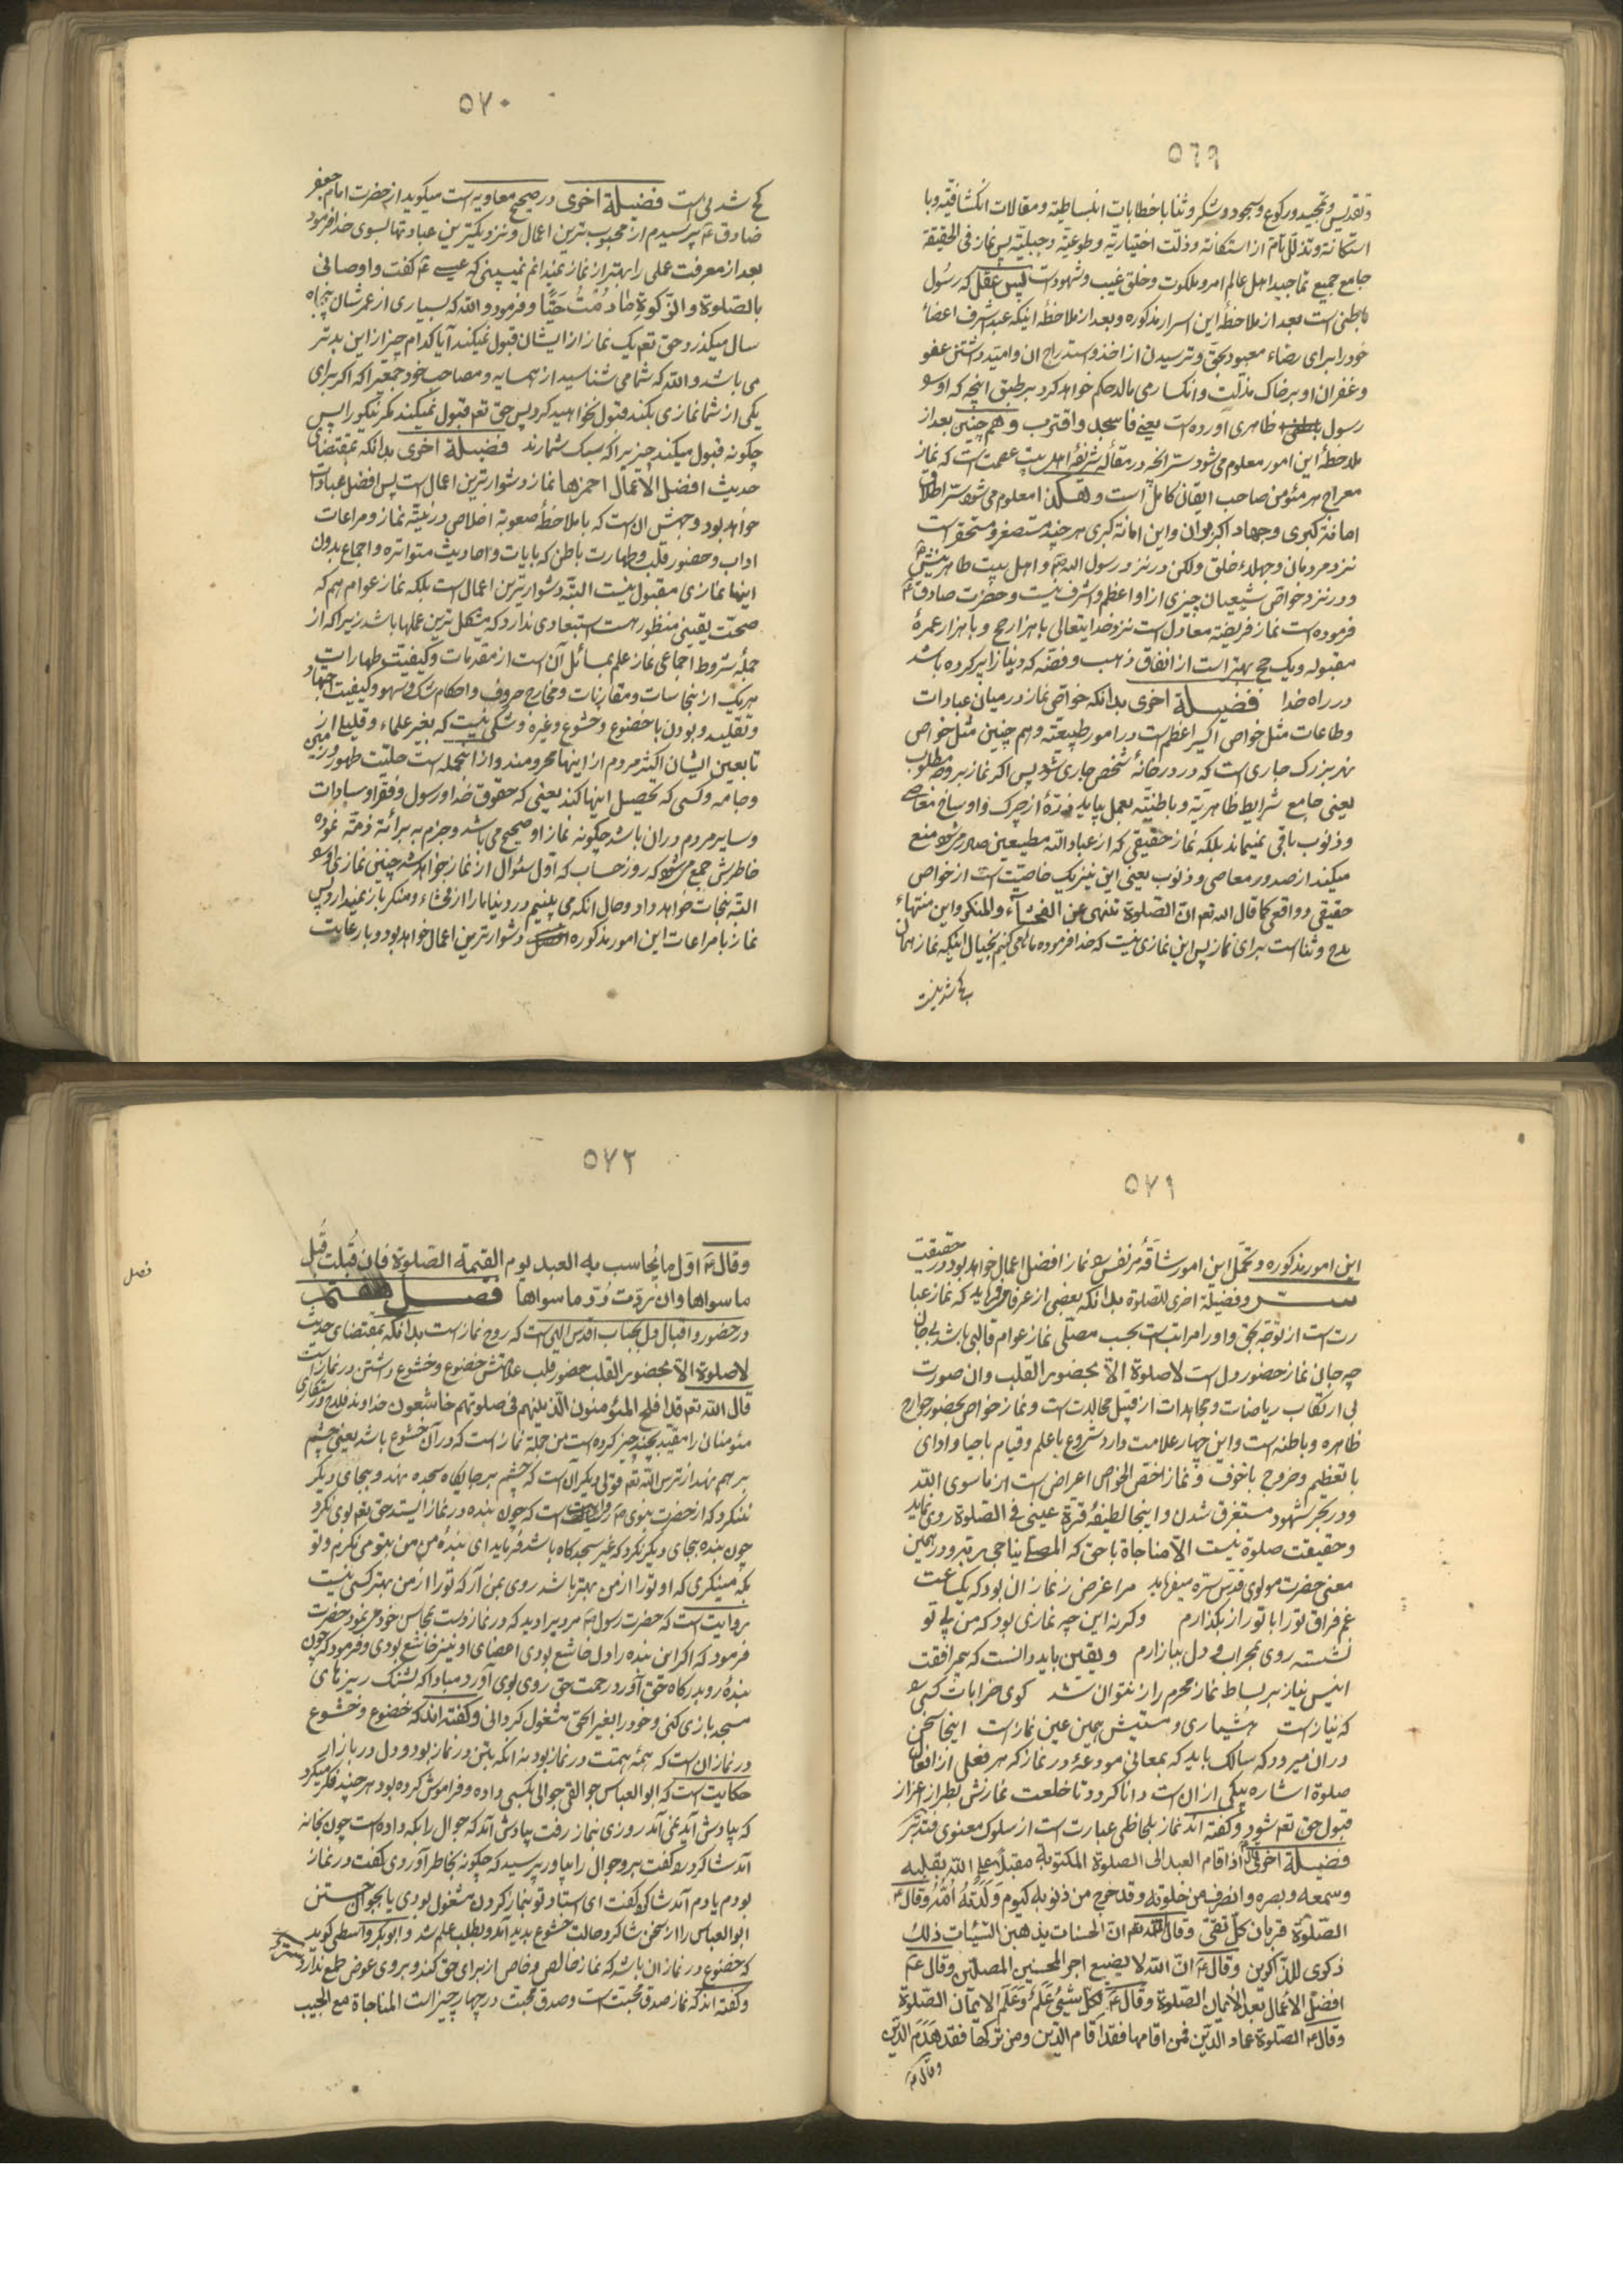 ٥٦٩
و تقدیس و تمجید و رکوع و سجود و شکر و ثنا با خطابات انبساطیّه و مقالات انکشافیّه و با
استکانة و تذلّل تامّ از استکانة و ذلّت اختیاریّه و طوعیّه و جبلیّه پس نماز فی الحقیقة
جامع جمیع تماجید اهل عالم امر و ملکوت و خلق غیب و شهودست پس عقل که رسُول
باطنی است بعد از ملاحظهٔ این اسرار مذکوره و بعد از ملاحظهٔ اینکه عبد اشرف اعضاء
خود را برای رضاء معبود بحقّ و ترسیدن از اخذ و استدراج ان و امید داشتن عفو
و غفران او بر خاک مذلّت و انکسار می مالد حکم خواهد کرد بر طبق انچه که او و
رسول ظاهری اورده است یعنی فاسجد واقترب و هم چنین بعد از
ملاحظهٔ این امور معلوم می شود سرّ انچه در مقالهٔ شریفهٔ اهل بیت عصمت است که نماز
معراج هر مئومن صاحب ایقان کامل است و هکذا معلوم می شود سرّ اطلاق
امانة کبری و جهاد اکبر بران و این امانة کبری هر چند مستصغر و مستحقر است
نزد مردمان و جهلاء خلق ولکن در نزد رسول الله ص و اهل بیت طاهرینش ع
و در نزد خواصّ شیعیان چیزی از او اعظم و اشرف نیست و حضرت صادق ع
فرموده است نماز فریضه معادل است نزد خدایتعالی با هزار حج و با هزار عمرهٔ
مقبوله و یک حج بهتر است از انفاق ذهب و فضّه که دنیا را پر کرده باشد
در راه خدا فضیلة اخری بدانکه خواصّ نماز در میان عبادات
و طاعات مثل خواصّ اکسیر اعظم است در امور طبیعیّه و هم چنین مثل خواصّ
نهر بزرک جاری است که در در خانهٔ شخص جاری شود پس اکر نماز بر وجه مطلوب
یعنی جامع شرایط ظاهریّه و باطنیّه بعمل بیاید ذرّهٔ از چرک و اوساخ معاصی
و ذنوب باقی نمیماند بلکه نماز حقیقی که از عباد الله مطیعین صادر می شود منع
میکند از صدور معاصی و ذنوب یعنی این نیز یک خاصیّت است از خواص
حقیقی و واقعی کما قال الله تعم انّ الصّلوة تنهی عن الفحشآء والمنکر و این منتهاء
مدح و ثنا است برای نماز پس این نمازی نیست که خدا فرموده ما می کنیم بخیال اینکه نماز همان

٥٧٠
کج شدنی است فضیلة اخری در صحیح معاویه است میکوید از حضرت امام جعفر
صادق ع پرسیدم از محبوب ترین اعمال و نزدیکترین عبادتها بسوی خدا فرمود
بعد از معرفت عملی را بهتر از نماز نمیدانم نمیبینی که عیسی ع گفت و اوصانی
بالصّلوة والزّکوةِ مٰا دُمْتُ حَیّاً و فرمود والله که بسیاری از عمرشان پنجاه
سال میکذرد حق تعم یک نماز از ایشان قبول نمیکند آیا کدام چیز از این بدتر
می باشد والله که شما می شناسید از همسایه و مصاحب خود جمعیرا که اکر برای
یکی از شما نمازی بکند قبول نخواهید کرد پس حق تعم قبول نمیکند مکر نیکو را پس
چکونه قبول میکند چیزیرا که سبک شمارند فضیلة اخری بدانکه بمقتضای
حدیث افضل الاعمال احمزها نماز دشوارترین اعمال است پس افضل عبادات
خواهد بود و وجهش ان است که با ملاحظهٔ صعوبة اخلاص در نیّة نماز و مراعات
اداب و حضور قلب و طهارت باطن که بآیات و احادیث متواتره و اجماع بدون
اینها نمازی مقبول نیست البتّه دشوارترین اعمال است بلکه نماز عوام هم که
صحّت یقینی منظور است استبعادی ندارد که مشکل ترین عملها باشد زیرا که از
جملهٔ شروط اجماعی نماز علم بمسائل آن است از مقدّمات و کیفیّت طهارات
هریک از نجاسات و مقارنات و مخارج حروف و احکام شک و سهو و کیفیّت اجتهاد
و تقلید و بودن با خضوع و خشوع و غیره و شکی نیست که بغیر علماء و قلیلی از
تابعین ایشان اکثر مردم از اینها محرومند و از انجمله است حلّیّت طهور و زمین
و جامه و کسی که تحصیل اینها کند یعنی که حقوق خدا و رسول و فقرا و سادات
و سایر مردم در ان باشد چکونه نماز او صحیح می باشد و جزم به برائة ذمّه نموده
خاطرش جمع می شود که روز حساب که اوّل سئوال از نماز خواهد شد چنین نمازی او را
البتّه نجات خواهد داد و حال انکه می بینیم در دنیا ما را از فحشاء و منکر باز نمیدارد پس
نماز با مراعات این امور مذکوره دشوارترین اعمال خواهد بود و با رعایت

٥٧١
این امور مذکوره و تحمّل این امور شاقّهٔ بر نفس نماز افضل اعمال خواهد بود در حقیقت
ســرّ و فضیلة اخری للصّلوة بدانکه بعضی از عرفا میفرماید که نماز عبا
رت است از توجّه بحق و او را مراتب است بحسب مصلّی نماز عوام قالبی باشد بی جان
چه جان نماز حضور دل است لا صلوة الّا بحضور القلب و ان صورت
بی ارتکاب ریاضات و مجاهدات از قبیل محالات است و نماز خواص بحضور جوارح
ظاهره و باطنه است و این چهار علامت دارد شروع با علم و قیام با حیا و ادای
با تعظیم و خروج با خوف و نماز اخصّ الخواص اعراض است از ما سوی الله
و در بحر شهود مستغرق شدن و اینجا لطیفهٔ قرّة عینی فی الصّلوة روی نماید
و حقیقت صلوة نیست الّا مناجاة با حق که المصلّی یناجی ربّه و در همین
معنی حضرت مولوی قدّس سرّه میفرماید مرا غرض ز نماز ان بود که یکساعت
غم فراق تو را با تو راز بکذارم وکرنه این چه نمازی بود که من بی تو
نشسته روی بمحراب و دل ببازارم و یقین باید دانست که بمرافقت
انیس نیاز بر بساط نماز محرم راز نتوان شد کوی خرابات کسی را
که نیاز است هشیاری و مستیش همین عین نماز است اینجا سخن
در ان میرود که سالک باید که بمعانی مودعهٔ در نماز که هر فعلی از افعال
صلوة اشاره بیکی از ان است دانا کردد تا خلعت نمازش بطراز اعزاز
قبول حق تعم شود و گفته اند نماز بلحاظی عبارت است از سلوک معنوی فتدبّر
فضیلة اخری قال ع اذا قام العبد الی الصلوة المکتوبة مقبلاً علی الله بقلبه
و سمعه و بصره و انصرف من صلوته و قد خرج من ذنوبه کیوم وَلَدَتْهُ اُمُّهُ و قال ع
الصّلوة قربان کلّ تقی و قال الله تعم انّ الحسنات یذهبن السّیئات ذلک
ذکری للذّاکرین و قال ع انّ الله لا یضیع اجر المحسنین المصلّین و قال ع
افضل الاعمال بعد الایمان الصّلوة و قال ع لکلّ شیئ عَلَمٌ وَ عَلَمُ الایمان الصّلوة
و قال ع الصّلوة عماد الدّین فمن اقامها فقد اقام الدّین و من ترکها فقد هَدَمَ الدّین
و قال ع

٥٧٢
و قال ع اوّل ما یُحاسب به العبد یوم القیمة الصّلوة فان قُبلت قُبِل
ما سواها وان رُدّت رُدّ ما سواها فصــل هفتم
در حضور و اقبال دل بجناب اقدس الهی است که روح نماز است بدانکه بمقتضای حدیث
لا صلوة الّا بحضور القلب حضور قلب علامتش خضوع و خشوع داشتن در نماز است
قال الله تعم قد افلح المئومنون الّذینهم فی صلوتهم خاشعون خداوند فلاح و رستکاری
مئومنان را مقیّد بچند چیز کرده است من جمله نماز است که در آن خشوع باشد یعنی چشم
بر هم نهد از ترس الله تعم قولی دیکر آن است که چشم بر جایکاه سجده نهد و بجای دیکر
ننکرد که از حضرت نبوی ص روایت است که چون بنده در نماز ایستد حق تعم بوی نکرد
چون بنده بجای دیکر نکرد که غیر سجدکاه باشد فرماید ای بندهٔ من من بتو می نکرم و تو
بکه مینکری که او تو را از من بهتر باشد روی بمن آر که تو را از من بهتر کسی نیست
روایت است که حضرت رسول ص مردیرا دید که در نماز دست بمحاسن خود می نمود حضرت
فرمود که اکر این بنده را دل خاشع بودی اعضای او نیز خاشع بودی و فرمود که چون
بندهٔ رو بدرکاه حق آورد رحمت حق روی بوی آورد مبادا که بسنک ریزهای
مسجد بازی کنی و خود را بغیر الحق مشغول کردانی و گفته اند که خضوع و خشوع
در نماز ان است که همهٔ همّت در نماز بود نه انکه بتن در نماز بود و دل در بازار
حکایت است که ابو العباس جوالقی جوالی بکسی داده و فراموش کرده بود هر چند فکر میکرد
که بیادش آید نمی آمد روزی بنماز رفت بیادش آمد که جوال را بکه داده است چون بخانه
آمد شاکرد را گفت برو جوال را بیاور پرسید که چکونه بخاطر آوردی گفت در نماز
بودم یادم آمد شاکرد گفت ای استاد تو بنماز کردن مشغول بودی یا بجوال جستن
ابو العباس را از سخن شاکرد حالت خشوع پدید آمد و بطلب علم شد و ابو بکر واسطی کوید
که خضوع در نماز ان باشد که نماز خالص و خاص از برای حق کند و بر وی عوض طمع ندارد
و گفته اند که نماز صدق محبّت است و صدق محبّت در چهار چیز است المناجاة مع الحبیب
فصل